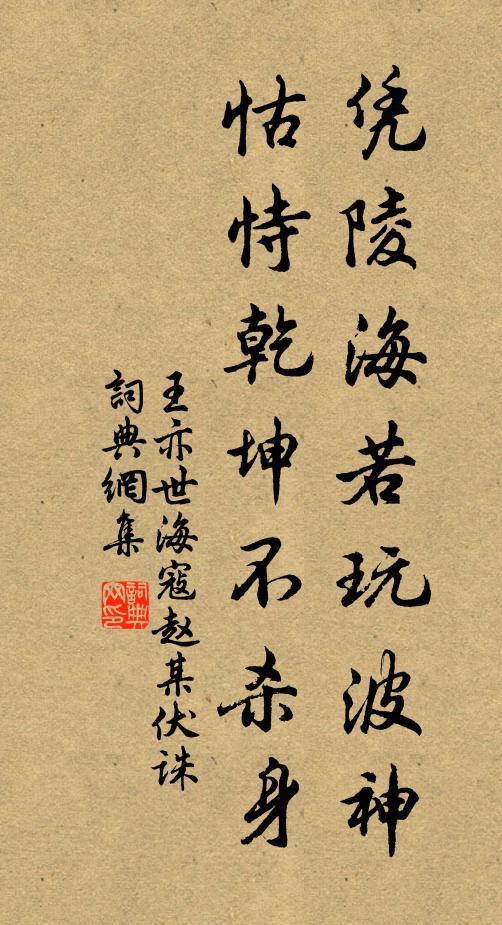 凭陵海若玩波神
怙恃乾坤不杀身
王亦世海寇赵某伏诛
詞典網集
詞典网印